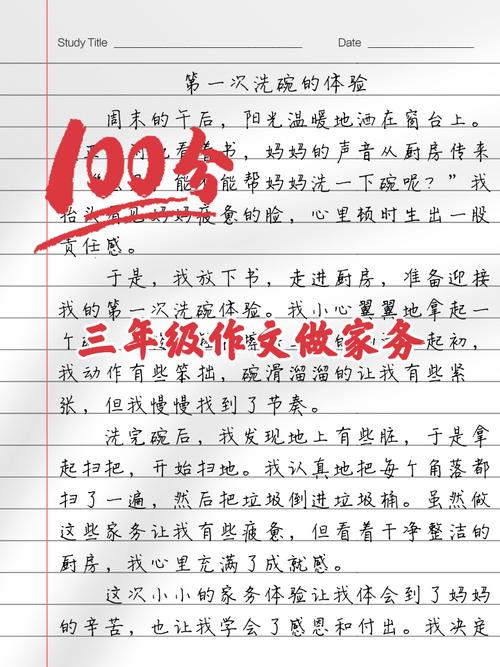 Study Title Date
第一次洗碗的体验
周末的午后，阳光温暖地洒在窗台上。
100分
看着书，妈妈的声音从厨房传来
能帮妈妈洗一下碗呢？”我
抬头看见妈妈疲惫的脸，心里顿时生出一股
责任感。
于是，我放下书，走进厨房，准备迎接
我的第一次洗碗体验。我小心翼翼地拿起一
个 起初，
三年级作文做家务
我动作有些笨拙，碗滑溜溜的让我有些紧
张，但我慢慢找到了节奏。
洗完碗后，我发现地上有些脏，于是拿
起扫把，开始扫地。我认真地把每个角落都
扫了一遍，然后把垃圾倒进垃圾桶。虽然做
这些家务让我有些疲惫，但看着干净整洁的
厨房，我心里充满了成就感。
这次小小的家务体验让我体会到了妈妈
的辛苦，也让我学会了感恩和付出。我决定